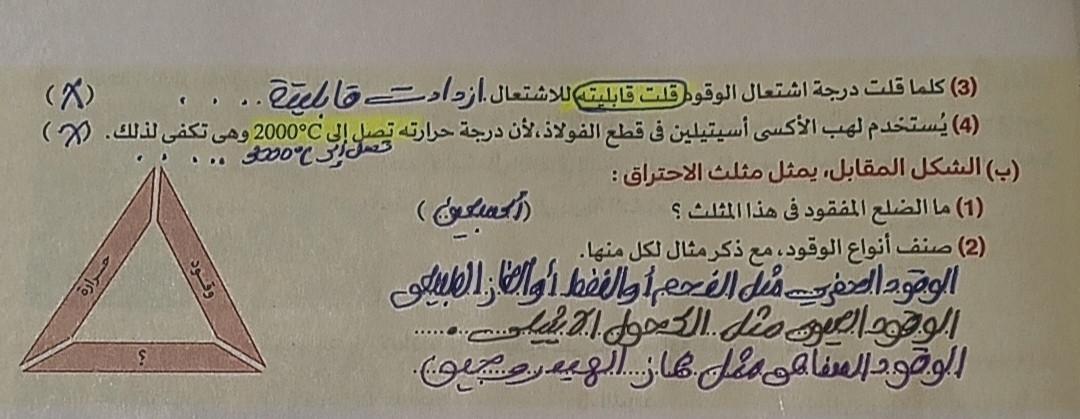 (3) كلما قلت درجة اشتعال الوقود قلت قابليته للاشتعال. ازدادت قابلية.... (X)
(4) يُستخدم لهب الأكسى أسيتيلين فى قطع الفولاذ، لأن درجة حرارته تصل إلى 2000°C وهى تكفى لذلك. (X)
تصل إلى 3000°C ....
(ب) الشكل المقابل، يمثل مثلث الاحتراق :
(1) ما الضلع المفقود فى هذا المثلث ؟ (أكسجين)
(2) صنف أنواع الوقود، مع ذكر مثال لكل منها.
الوقود الحفرى مثل الفحم أو النفط أو الغاز الطبيعى
الوقود الحيوى مثل الكحول الإثيلى.
الوقود الصناعى مثل غاز الهيدروجين.
حرارة
وقود
؟